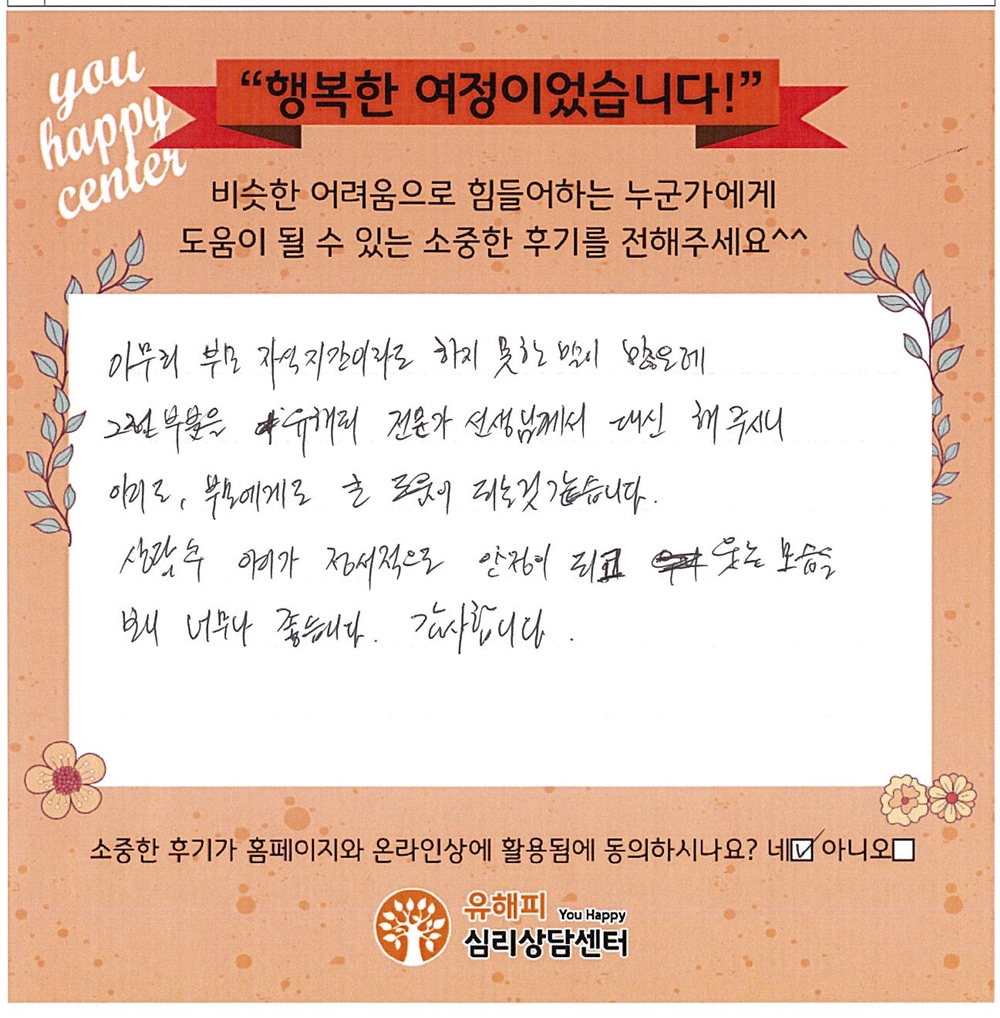 you
happy
center
“행복한 여정이었습니다!”
비슷한 어려움으로 힘들어하는 누군가에게
도움이 될 수 있는 소중한 후기를 전해주세요^^
아무리 부모 자식지간이라도 하지 못하는 말이 많은데
그런 부분을 유해피 전문가 선생님께서 대신 해 주시니
아이도, 부모에게도 큰 도움이 되는것 같습니다.
상담 후 아이가 정서적으로 안정이 되고 웃는 모습을
보니 너무나 좋습니다. 감사합니다.
소중한 후기가 홈페이지와 온라인상에 활용됨에 동의하시나요? 네☑ 아니오☐
유해피 You Happy
심리상담센터